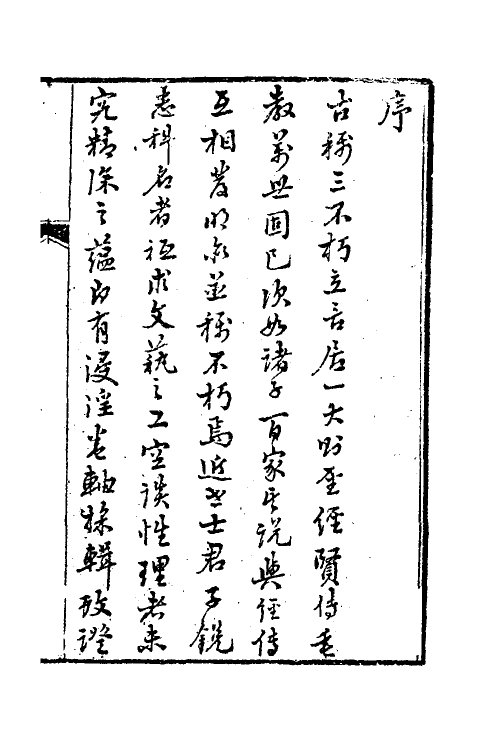 序
古稱三不朽立言居一大則聖經賢傳垂
教萬世固已次如諸子百家其說與經傳
互相發明亦並稱不朽焉近世士君子銳
志科名者祗求文藝之工空談性理者未
究精深之蘊即有浸淫卷軸採輯攷證